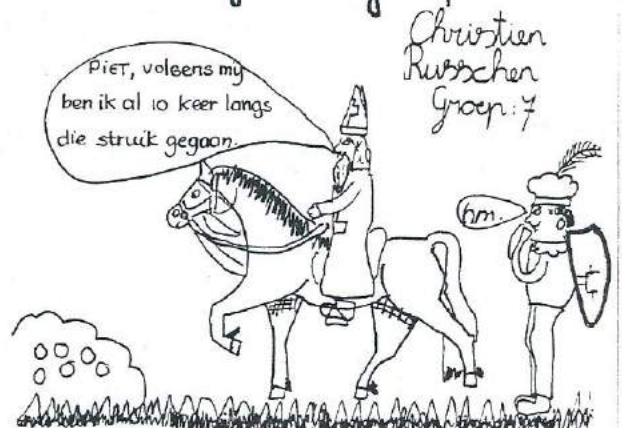 Christien
Russchen
Groep: 7
PIET, volgens mij
ben ik al 10 keer langs
die struik gegaan.
hm.